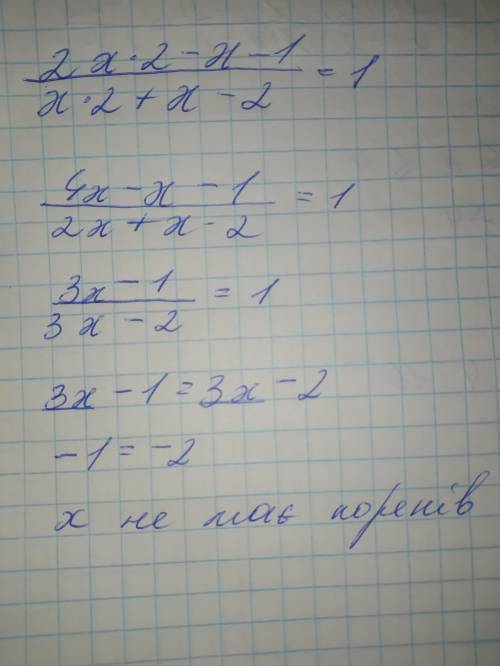 2x·2-x-1 / x·2+x-2 = 1
4x-x-1 / 2x+x-2 = 1
3x-1 / 3x-2 = 1
3x-1=3x-2
-1=-2
x не має коренів